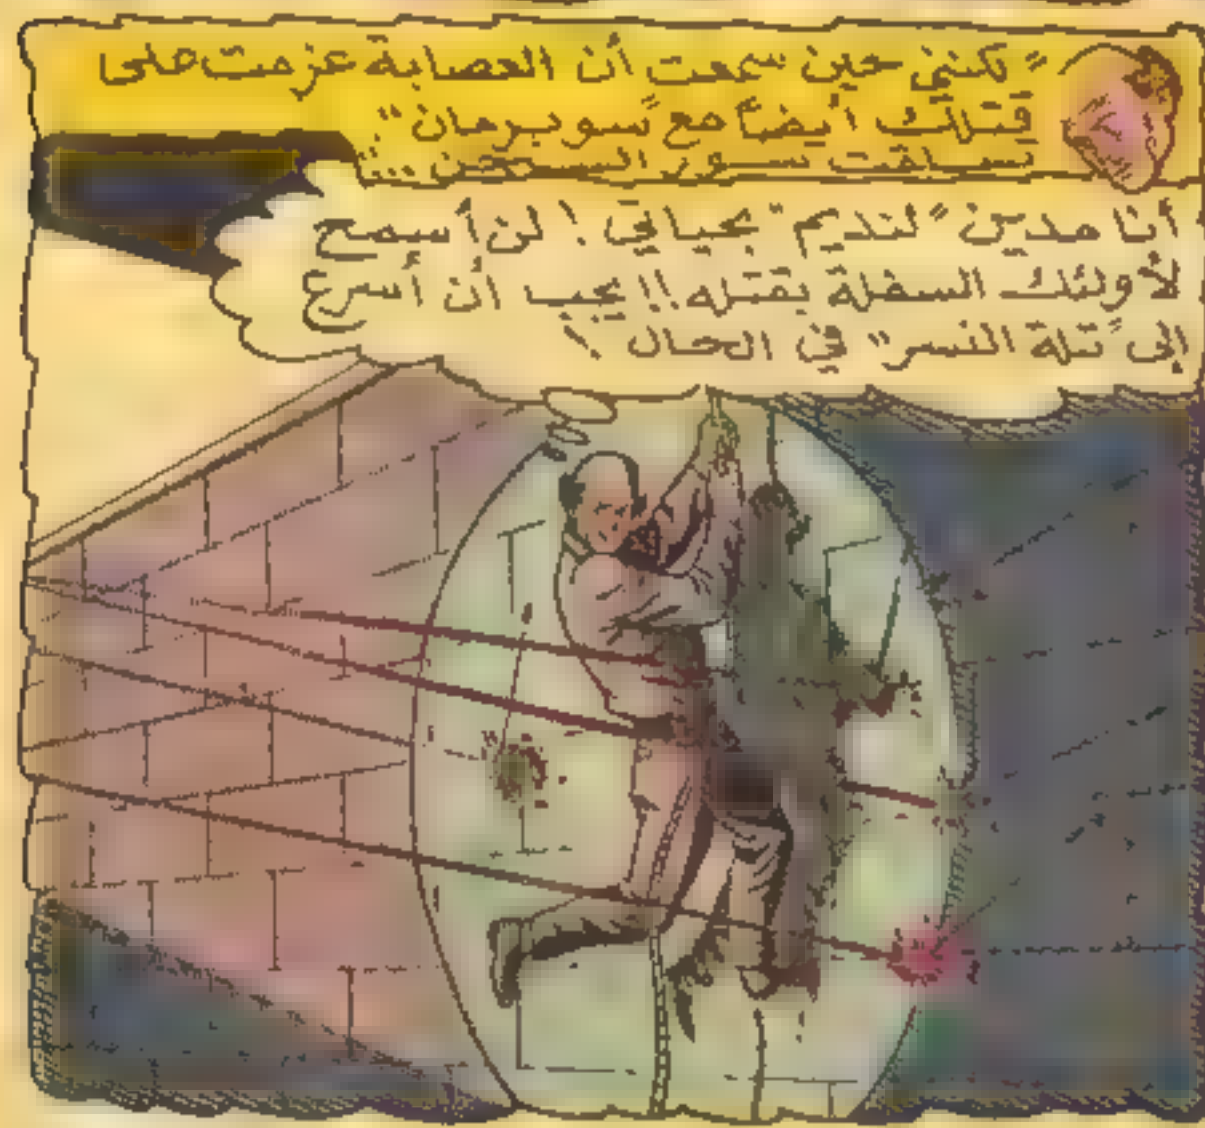 "لكنني حين سمعت أن العصابة عزمت على
قتلك أيضاً مع "سوبرمان"
تسلقت سور السجن ...
أنا مدين "لنديم" بحياتي ! لن أسمح
لأولئك السفلة بقتله !! يجب أن أسرع
إلى "تلة النسر" في الحال !